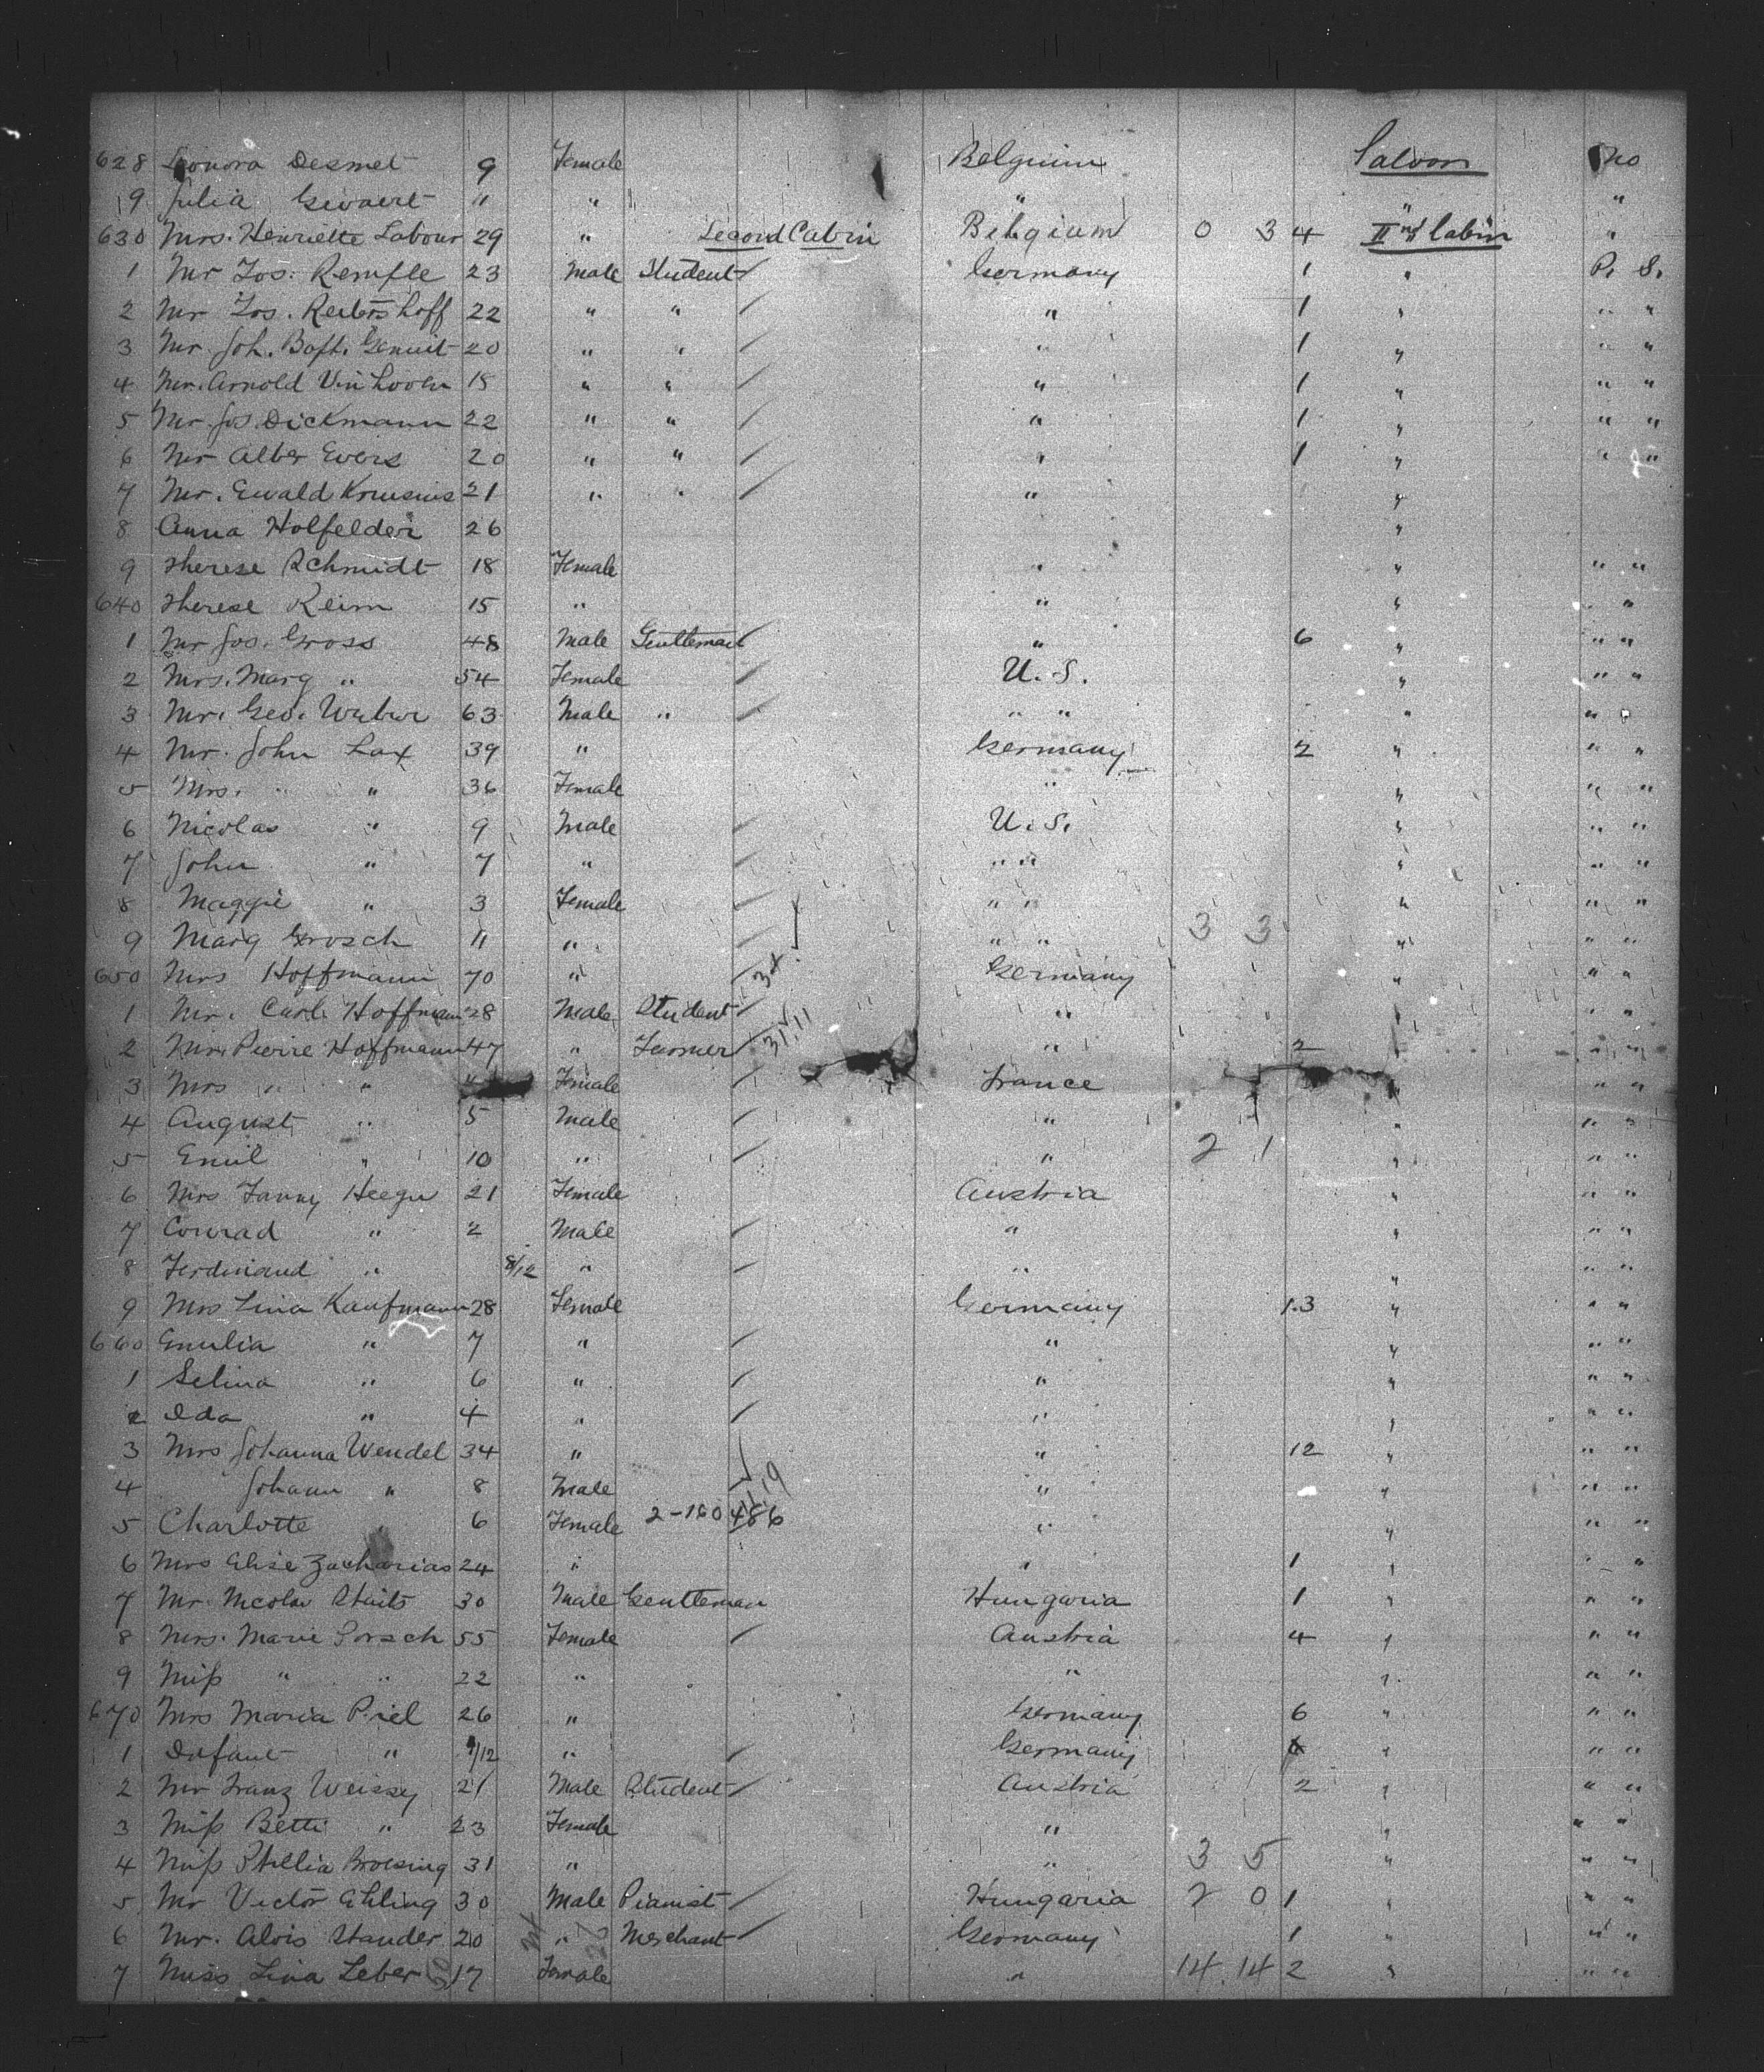 628 Leonora Desmet 9 Female Belgium Saloon no
9 Julia Gevaert 11 " " " "
630 Mrs. Henriette Labour 29 " Second Cabin Belgium 0 3 4 IInd Cabin "
1 Mr Jos. Remfle 23 Male Student Germany 1 " P. S.
2 Mr Jos. 22 " " " 1 " " "
3 Mr Joh. Bapt. 20 " " " 1 " " "
4 Mr. Arnold 18 " " " 1 " " "
5 Mr. Jos. Dickmann 22 " " " 1 " " "
6 Mr Alber Evers 20 " " " 1 " " "
7 Mr. Ewald 21 " " " "
8 Anna Holfelder 26 "
9 Therese Schmidt 18 Female " " " "
640 Therese Reim 15 " " " "
1 Mr Jos. Gross 48 Male Gentleman " 6 " " "
2 Mrs. Marg " 54 Female U. S. " " "
3 Mr. Geo. 63 Male " " " " "
4 Mr. John Lax 39 " Germany 2 " " "
5 Mrs. " 36 Female " " " "
6 Nicolas " 9 Male U. S. " " "
7 John " 7 " " " " " "
8 Maggie " 3 Female " " " " "
9 Marg Grosch 11 " " " 3 3 " " "
650 Mrs Hoffmann 70 " Germany " " "
1 Mr. Carl Hoffmann 28 Male Student " " "
2 Mr. Pierre Hoffmann 47 " Farmer " 2 " "
3 Mrs " " Female France " " "
4 August " 5 Male " " " "
5 Emil " 10 " " 2 1 " " "
6 Mrs Fanny 21 Female Austria " " "
7 Conrad " 2 Male " " " "
8 Ferdinand " 8/12 " " " " "
9 Mrs Lina Kaufmann 28 Female Germany 1.3 " " "
660 Emilia " 7 " " " " "
1 Selina " 6 " " " " "
2 Ida " 4 " " " " "
3 Mrs Johanna Wendel 34 " " 12 " " "
4 Johann " 8 Male " " " "
5 Charlotte " 6 Female 2-160 486 " " " "
6 Mrs Elise Zacharias 24 " " 1 " " "
7 Mr. 30 Male Gentleman Hungaria 1 " " "
8 Mrs. Marie 55 Female Austria 4 " " "
9 Miss " " 22 " " " " "
670 Mrs Maria Piel 26 " Germany 6 " " "
1 Infant " /12 " Germany " " "
2 Mr Franz 21 Male Student Austria 2 " " "
3 Miss Betti " 23 Female " " " "
4 Miss 31 " " 3 5 " " "
5 Mr Victor Ehling 30 Male Pianist Hungaria 2 0 1 " " "
6 Mr. Alois Stander 20 " Merchant Germany 1 " " "
7 Miss Lina Leber 17 Female " 14. 14 2 " " "